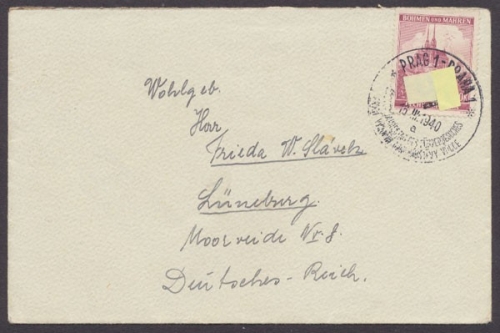 BÖHMEN UND MÄHREN
PRAG 1 - PRAHA 1
III.1940
a
Wohlgeb.
Har
Frieda W. Slávek
Lüneburg.
Moorveide Nr. 8.
Deutsches-Reich.